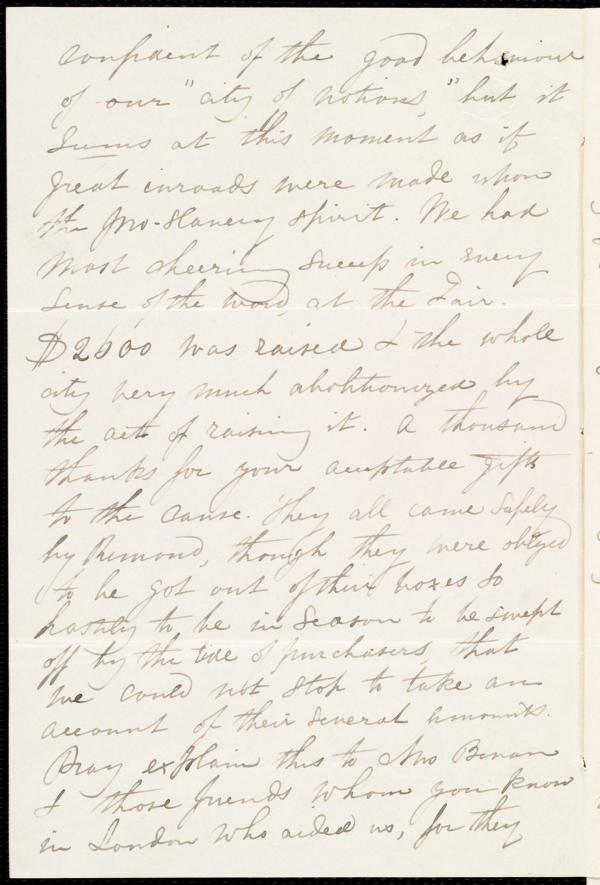 confident of the good behaviour
of our "city of notions," but it
seems at this moment as if
great inroads were made upon
the pro-slavery spirit. We had
most cheering success in every
sense of the word, at the Fair.
$2600 was raised & the whole
city very much abolitionized by
the act of raising it. A thousand
thanks for your acceptable gifts
to the cause. They all came safely
by Remond, though they were obliged
to be got out of their boxes so
hastily to be in season to be swept
off by the tide of purchasers, that
we could not stop to take an
account of their several amounts.
Pray explain this to Mrs
& those friends whom you know
in London who aided us, for they